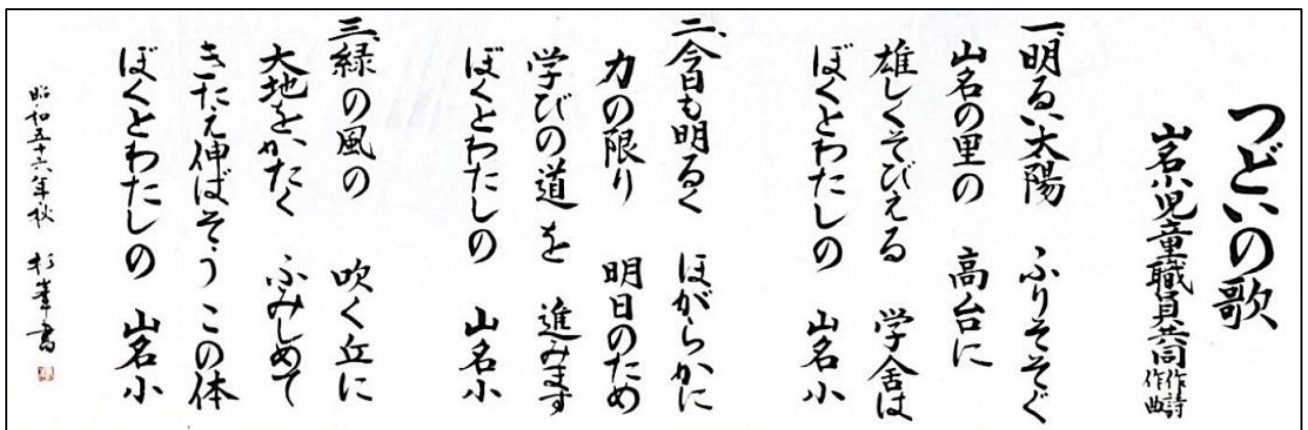 つどいの歌
山名小児童職員共同作詩作曲
一、明るい太陽 ふりそそぐ
山名の里の 高台に
雄しくそびえる 学舎は
ぼくとわたしの 山名小
二、今日も明るく ほがらかに
力の限り 明日のため
学びの道を 進みます
ぼくとわたしの 山名小
三、緑の風の 吹く丘に
大地をかたく ふみしめて
きたえ伸ばそう この体
ぼくとわたしの 山名小
昭和五十六年秋 杉峯書